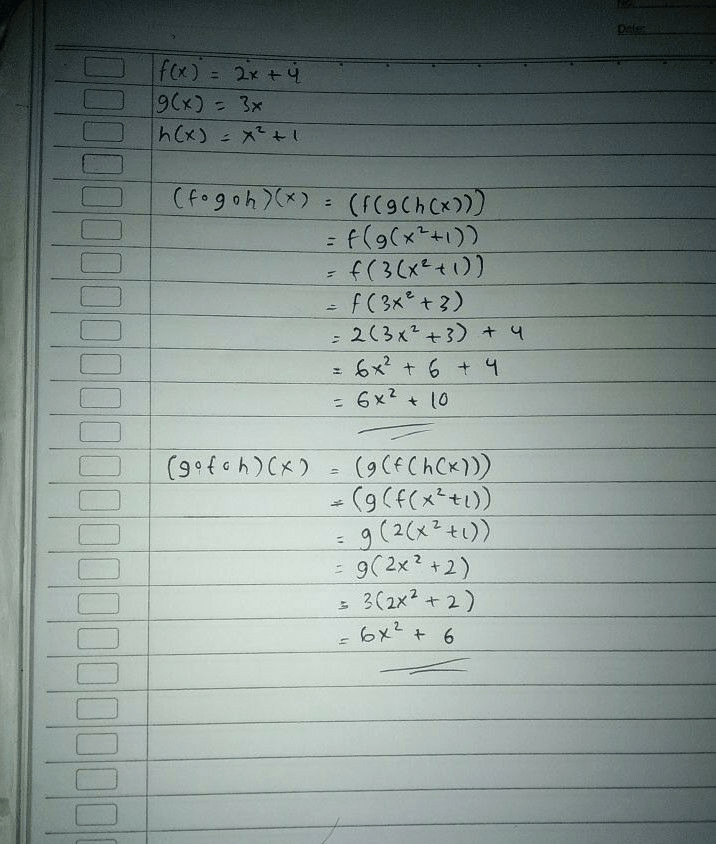 No:
Date:
f(x) = 2x + 4
g(x) = 3x
h(x) = x² + 1
(f∘g∘h)(x) = (f(g(h(x)))
= f(g(x²+1))
= f(3(x²+1))
= f(3x²+3)
= 2(3x²+3) + 4
= 6x² + 6 + 4
= 6x² + 10
(g∘f∘h)(x) = (g(f(h(x)))
= (g(f(x²+1))
= g(2(x²+1))
= g(2x²+2)
= 3(2x²+2)
= 6x² + 6